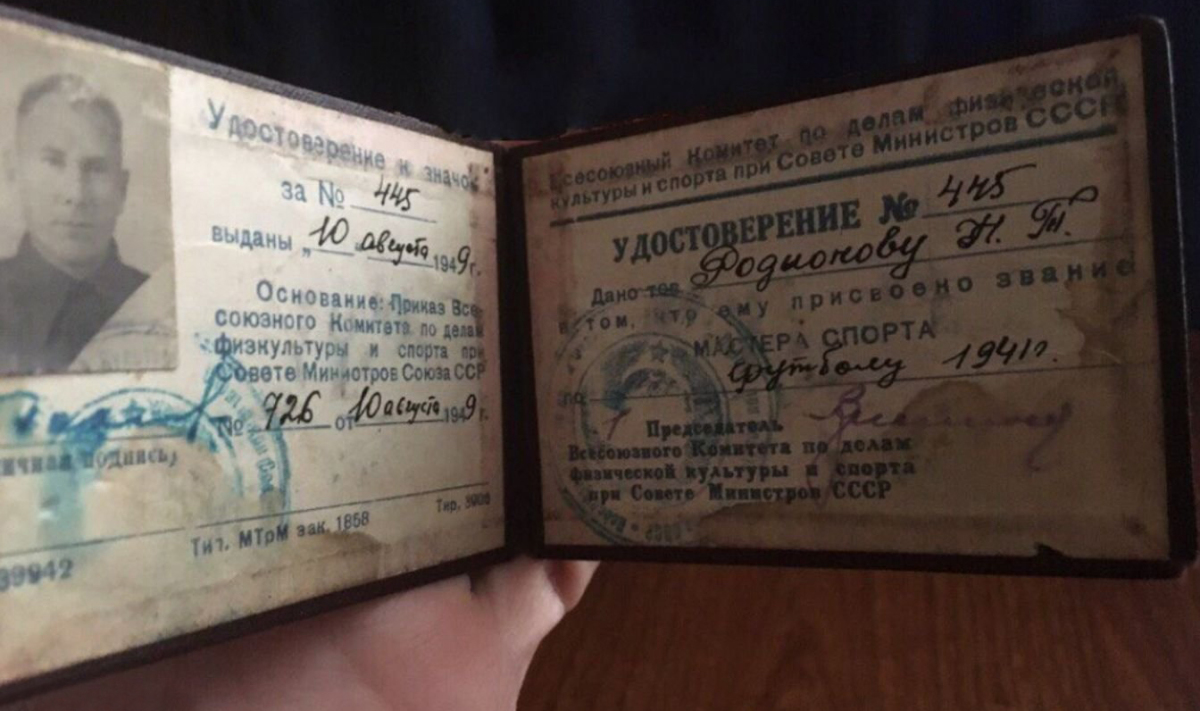 Удостоверение к значк
за № 445
выданы „10 августа 1949 г.
Основание: Приказ Все-
союзного Комитета по делам
физкультуры и спорта при
Совете Министров Союза ССР
№ 726 от 10 августа 1949 г.
ичная подпись)
Тип. МТрМ зак. 1858
39942
Всесоюзный Комитет по делам физической
культуры и спорта при Совете Министров СССР
УДОСТОВЕРЕНИЕ № 445
Дано тов Родионову Н. Т.
в том, что ему присвоено звание
МАСТЕРА СПОРТА
по футболу 1941 г.
Председатель
Всесоюзного Комитета по делам
физической культуры и спорта
при Совете Министров СССР